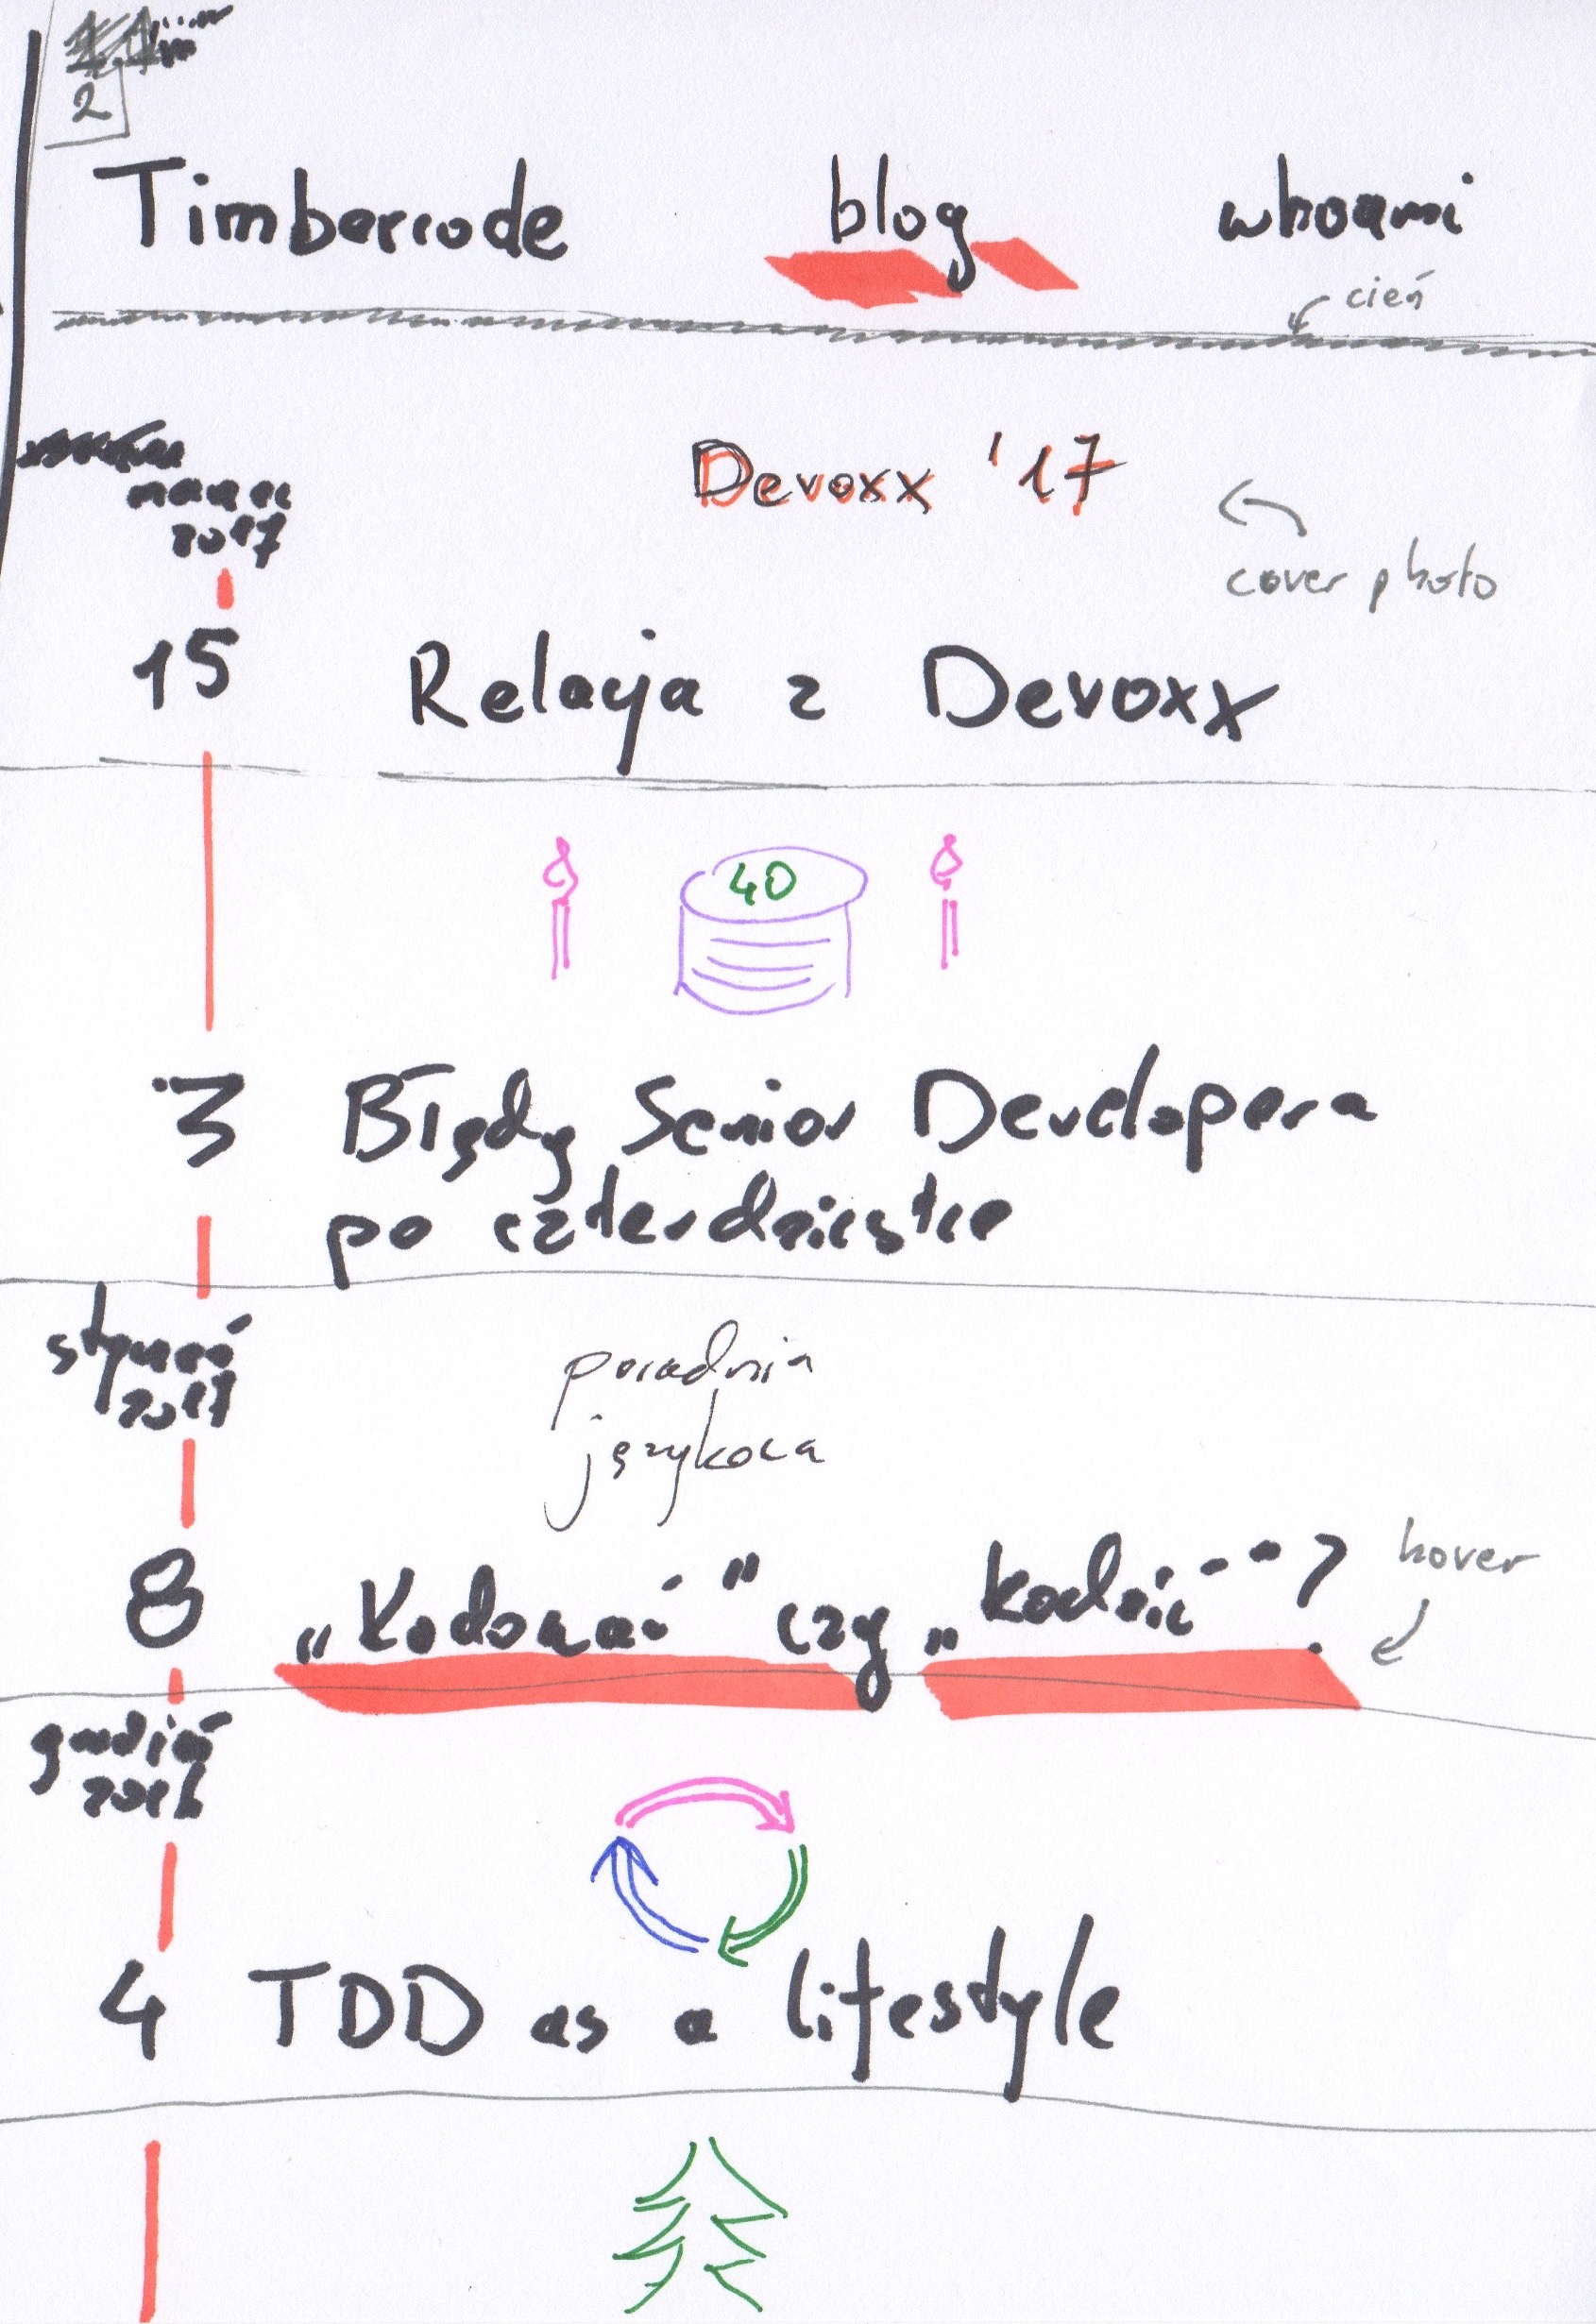 2
Timbercode blog whoami
cień
Devoxx '17
marzec
2017
cover photo
15 Relacja z Devoxx
40
3 Błędy Senior Developera
po czterdziestce
styczeń
2017
poradnia
językowa
hover
8 „Kodować” czy „kodzić”?
grudzień
2016
4 TDD as a lifestyle